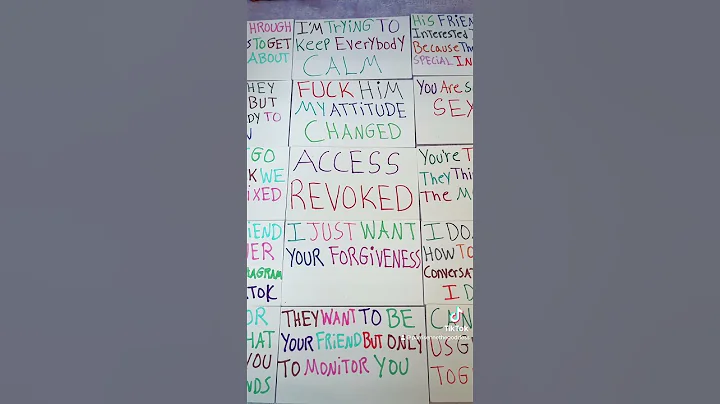 HROUGH
TO GET
ABOUT
I'M TRYING TO
Keep Everybody
CALM
HiS FRIEN
Interested
Because Th
SPECIAL IN
HEY
BUT
DY TO
FUCK HiM
MY ATTITUDE
CHANGED
YOU Are S
SEX
GO
K WE
iXED
ACCESS
REVOKED
You're T
They Thi
The M
iEND
ER
TAGRAM
TOK
I JUST WANT
YOUR FORGiVENESS
I DO
HOW TO
ConversA
I D
OR
HAT
YOU
NDS
THEY WANT TO BE
YOUR FRiEND BUT ONLY
TO MONiTOR YOU
CAN
US G
TOG
TikTok